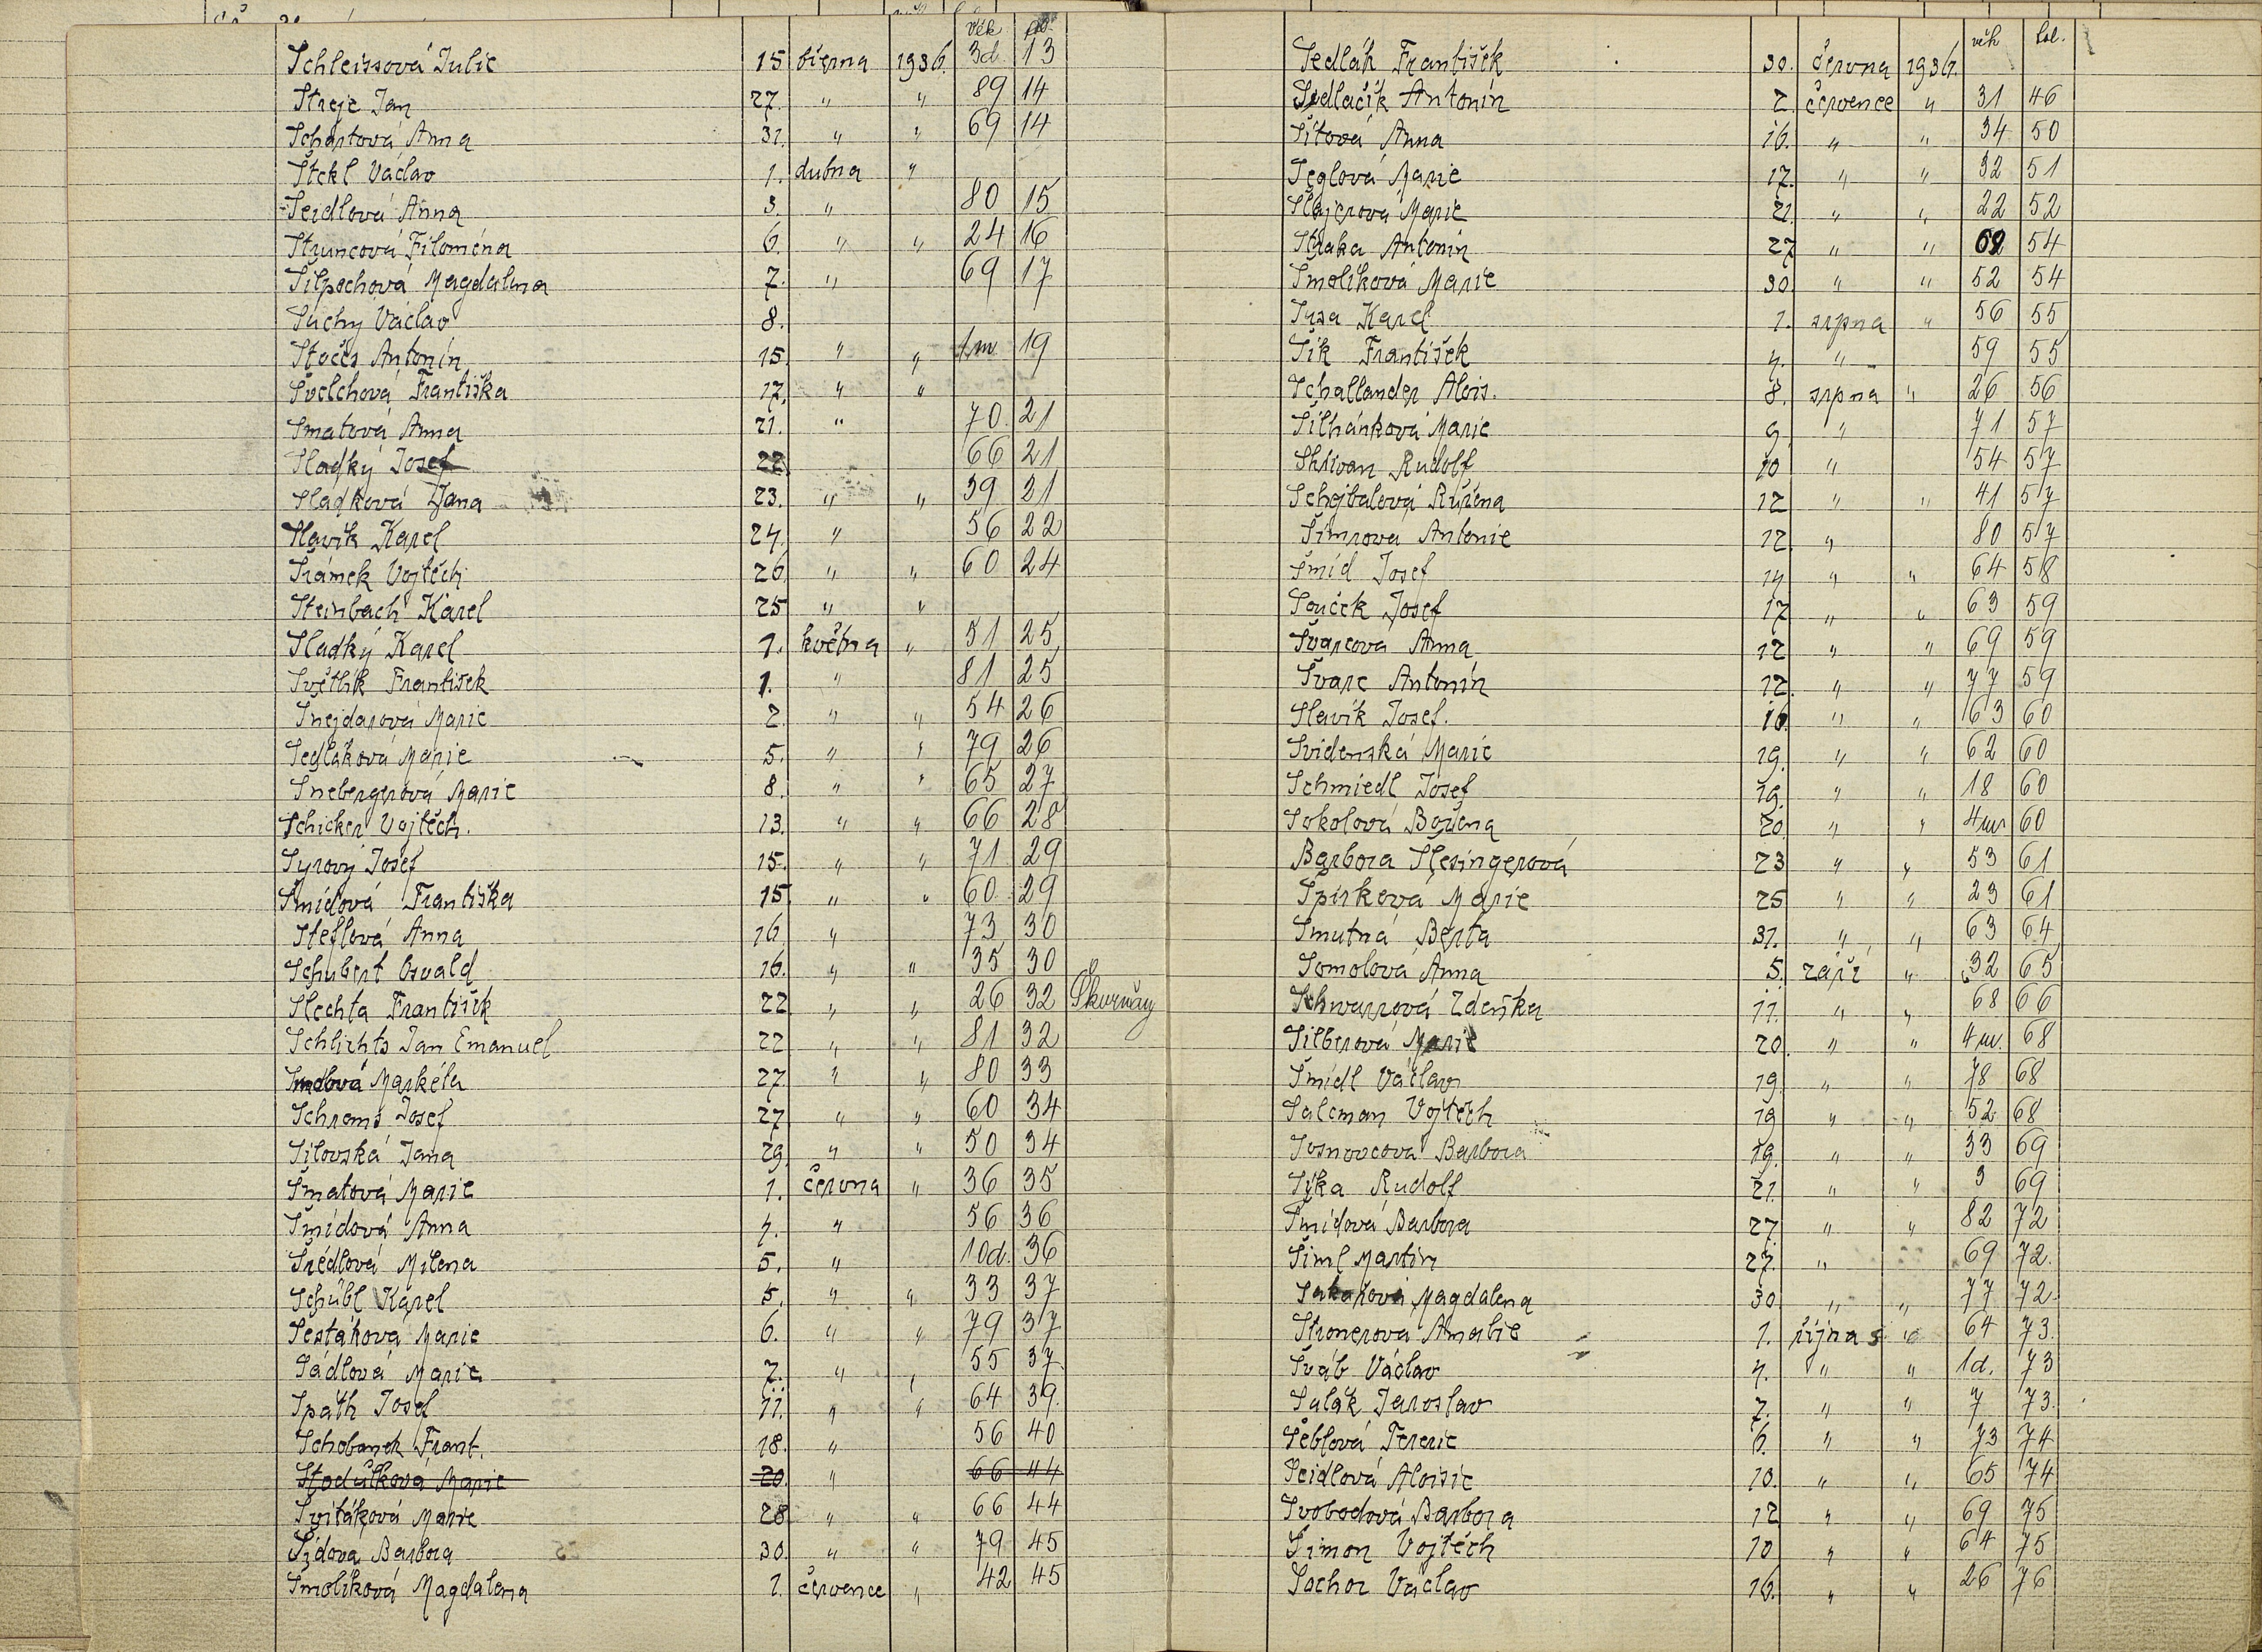 věk fol.
Schleissová Julie 15 března 1936. 3d 13
Streje Jan 27. " " 89 14
Schartová Anna 31. " " 69 14
Štekl Václav 1. dubna "
Seidlová Anna 3. " 80 15
Struncová Filoména 6. " " 24 16
Magdalena 7. " 69 17
Suchý Václav 8.
Stočes Antonín 15. " " 1m 19
Švelchová Františka 17. " "
Šmatová Anna 21. " 70 21
Sladký Josef 22 66 21
Sladková Jana 23. " " 39 21
Slavík Karel 24. " 56 22
Šrámek Vojtěch 26 " " 60 24
Steinbach Karel 25 " "
Sladký Karel 1. května " 51 25
Světlík František 1. " 81 25
Šnejdarová Marie 2. " " 54 26
Sedláková Marie 5. " " 79 26
Šnebergerová Marie 8. " " 65 27
Schicker Vojtěch. 13. " " 66 28
Syrový Josef 15. " " 71 29
Šmídová Františka 15 " " 60 29
Šteflová Anna 16 " 73 30
Schubert Osvald 16. " " 35 30
Šlechta František 22 " " 26 32 Skvrňany
Schlichts Jan Emanuel 22 " " 81 32
Markéta 27 " " 80 33
Schrems Josef 27 " " 60 34
Šilovská Jana 29 " " 50 34
Šmatová Marie 1. června " 36 35
Šmídová Anna 4. " 56 36
Šrédlová Milena 5. " 10d. 36
Schübl Karel 5. " " 33 37
Šestáková Marie 6. " " 79 37
Sádlová Marie 7. " " 55 37
Späth Josef 11. " " 64 39.
Schobanek Frant. 18. " 56 40
Stodůlková Marie 20. " 66 44
Svitáková Marie 28 " " 66 44
Šídova Barbora 30. " " 79 45
Smolíková Magdalena 1. července " 42 45
věk fol.
Sedlák František 30. června 1936.
Sedlačík Antonín 2. července " 31 46
Šítová Anna 16. " " 34 50
Šeglová Marie 17. " " 32 51
Šlajerová Marie 21. " " 22 52
Straka Antonín 27 " " 62 54
Smolíková Marie 30 " " 52 54
Susa Karel 1. srpna " 56 55
Šik František 4. " 59 55
Schallander Alois. 8. srpna " 26 56
Šilhánková Marie 9. " 71 57
Skřivan Rudolf 10 " 54 57
Schejbalová Růžena 12 " " 41 57
Šimrova Antonie 12. " 80 57
Šmíd Josef 14 " " 64 58
Souček Josef 17 " " 63 59
Švarcová Anna 12 " " 69 59
Švarc Antonín 12. " " 77 59
Slavík Josef. 16. " " 63 60
Svidenská Marie 19. " " 62 60
Schmiedl Josef 19. " " 18 60
Sokolová Božena 20. " " 4m 60
Barbora Šlesingerová 23 " " 53 61
Špirkova Marie 25 " " 23 61
Smutná Berta 31. " " 63 64
Somolová Anna 5. září " 32 65
Schwarzová Zdeňka 11. " " 68 66
Silberová Marie 20. " " 4m. 68
Šmídl Václav 19. " " 78 68
Salcman Vojtěch 19 " " 52 68
Sosnovcova Barbora 19. " " 33 69
Sýka Rudolf 21. " " 3 69
Šmídová Barbora 27. " " 82 72
Šiml Martin 27. " 69 72.
Magdalena 30 " " 77 72
Stronerova Amalie 1. října " 64 73.
Šváb Václav 4. " " 1d. 73
Salák Jaroslav 7. " " 7 73.
Šeblová Terezie 6. " " 73 74
Seidlová Aloisie 10. " " 65 74
Svobodová Barbora 12 " " 69 75
Šimon Vojtěch 10 " " 64 75
Sochor Václav 16. " " 26 76